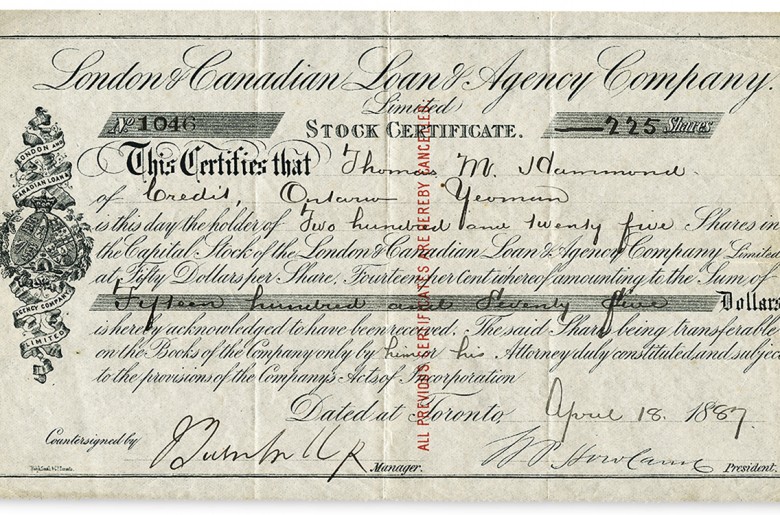 London & Canadian Loan & Agency Company.
Limited
No 1046
STOCK CERTIFICATE.
225 Shares
This Certifies that Thomas M. Hammond
of Credit, Ontario Yeoman
is this day the holder of Two hundred and twenty five Shares in
the Capital Stock of the London & Canadian Loan & Agency Company Limited
at Fifty Dollars per Share. Fourteen per Cent whereof amounting to the Sum of
Fifteen hundred and Seventy five Dollars
is hereby acknowledged to have been received. The said Shares being transferable
on the Books of the Company only by him or his Attorney duly constituted, and subject
to the provisions of the Company's Acts of Incorporation
Dated at Toronto, April 18. 1887.
Countersigned by
Manager.
President.
LONDON AND
CANADIAN LOAN &
AGENCY COMPANY
LIMITED
ALL PREVIOUS CERTIFICATES ARE HEREBY CANCELLED